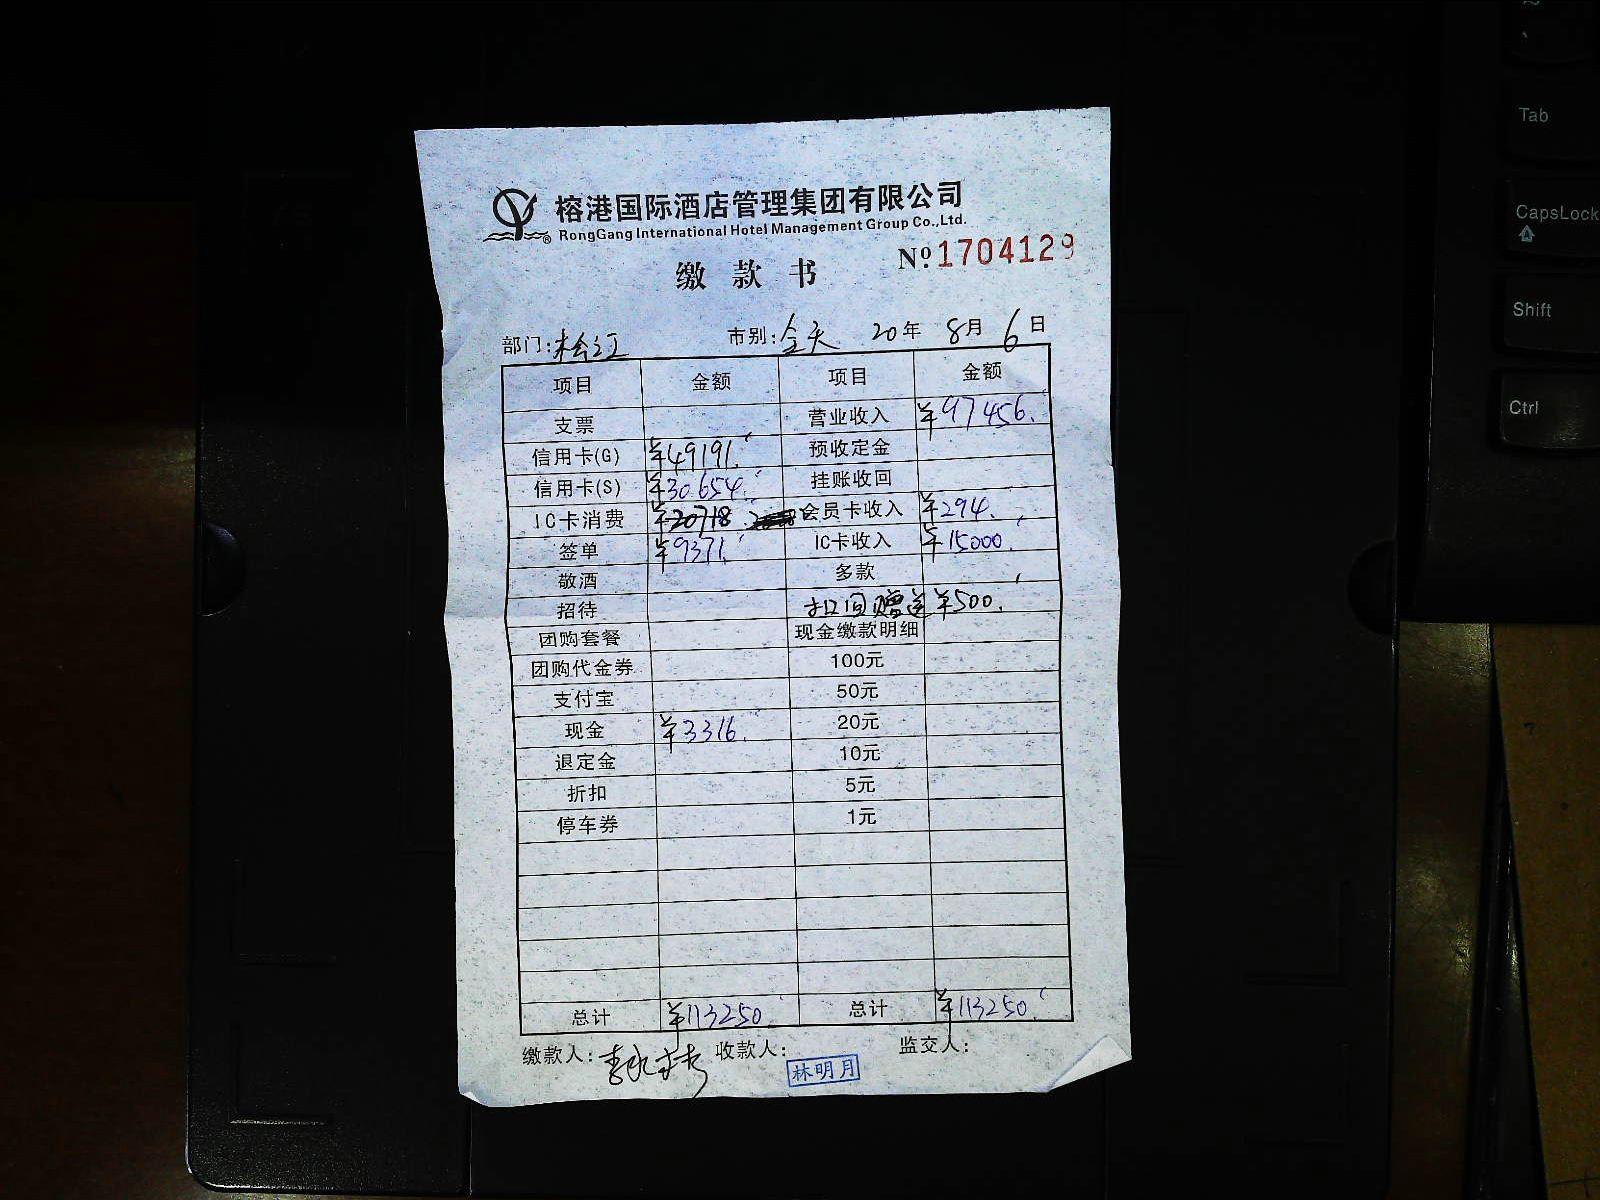 榕港国际酒店管理集团有限公司
RongGang International Hotel Management Group Co.,Ltd.
缴款书
Nº.1704129
部门:松江 市别:全天 20年 8月 6日
项目 金额 项目 金额
支票 营业收入 ¥97456.
信用卡(G) ¥49191. 预收定金
信用卡(S) ¥30654. 挂账收回
IC卡消费 ¥20718. 会员卡收入 ¥294.
签单 ¥9371. IC卡收入 ¥15000.
敬酒 多款
招待 扣回赠送 ¥500.
团购套餐 现金缴款明细
团购代金券 100元
支付宝 50元
现金 ¥3316. 20元
退定金 10元
折扣 5元
停车券 1元
总计 ¥113250. 总计 ¥113250.
缴款人: 收款人: 林明月 监交人:
Tab
CapsLock
Shift
Ctrl